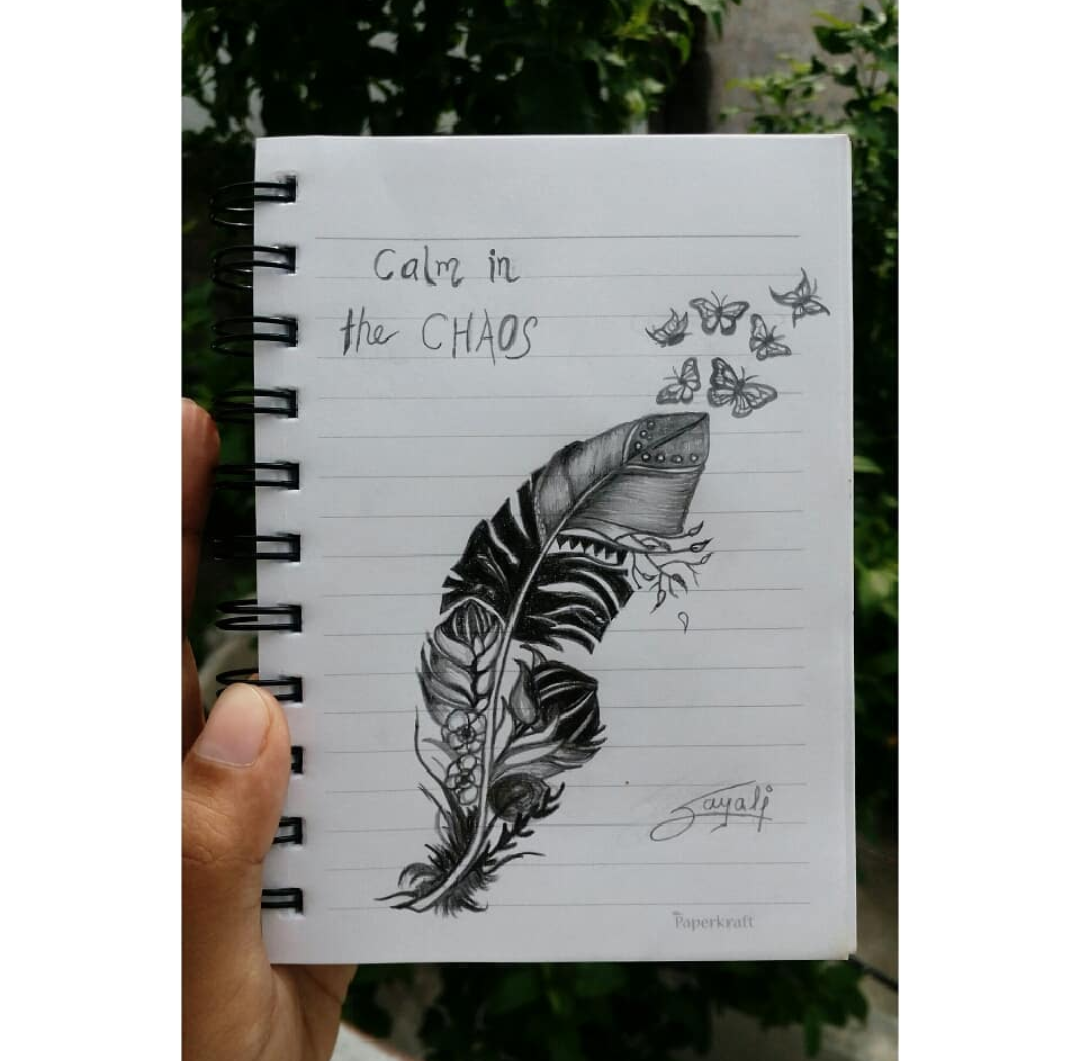 Calm in
the CHAOS
Sayali
Paperkraft